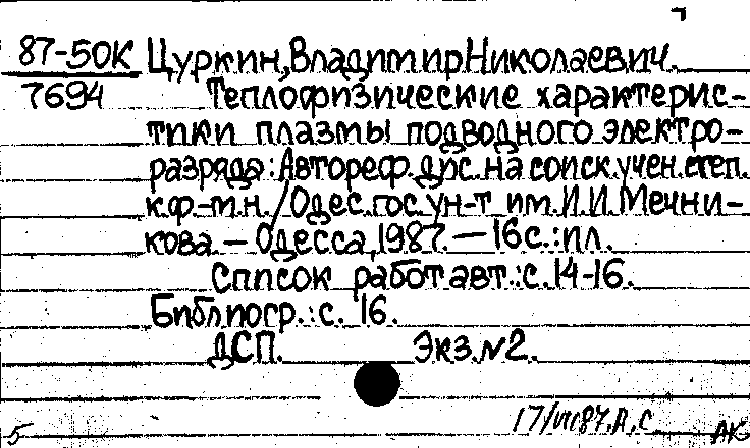 87-50К Цуркин, Владимир Николаевич.
7694 Теплофизические характерис-
тики плазмы подводного электро-
разряда: Автореф. дис. на соиск. учен. степ.
к.ф.-м.н. / Одес. гос. ун-т им. И.И. Мечни-
кова. – Одесса, 1987. – 16с.: ил.
Список работ авт.: с. 14-16.
Библиогр.: с. 16.
ДСП. Экз. №2.
17/VII87. А, С
5 АК